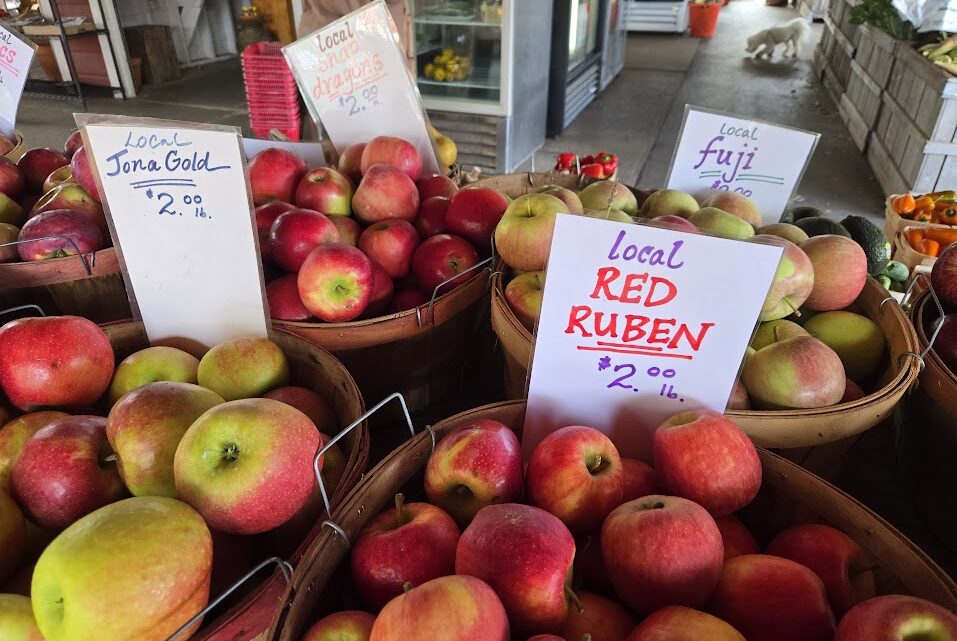 Local
Snap
dragons
$2.00 lb.
Local
Jona Gold
$2.00 lb.
Local
fuji
$2.00
local
RED
RUBEN
$2.00 lb.